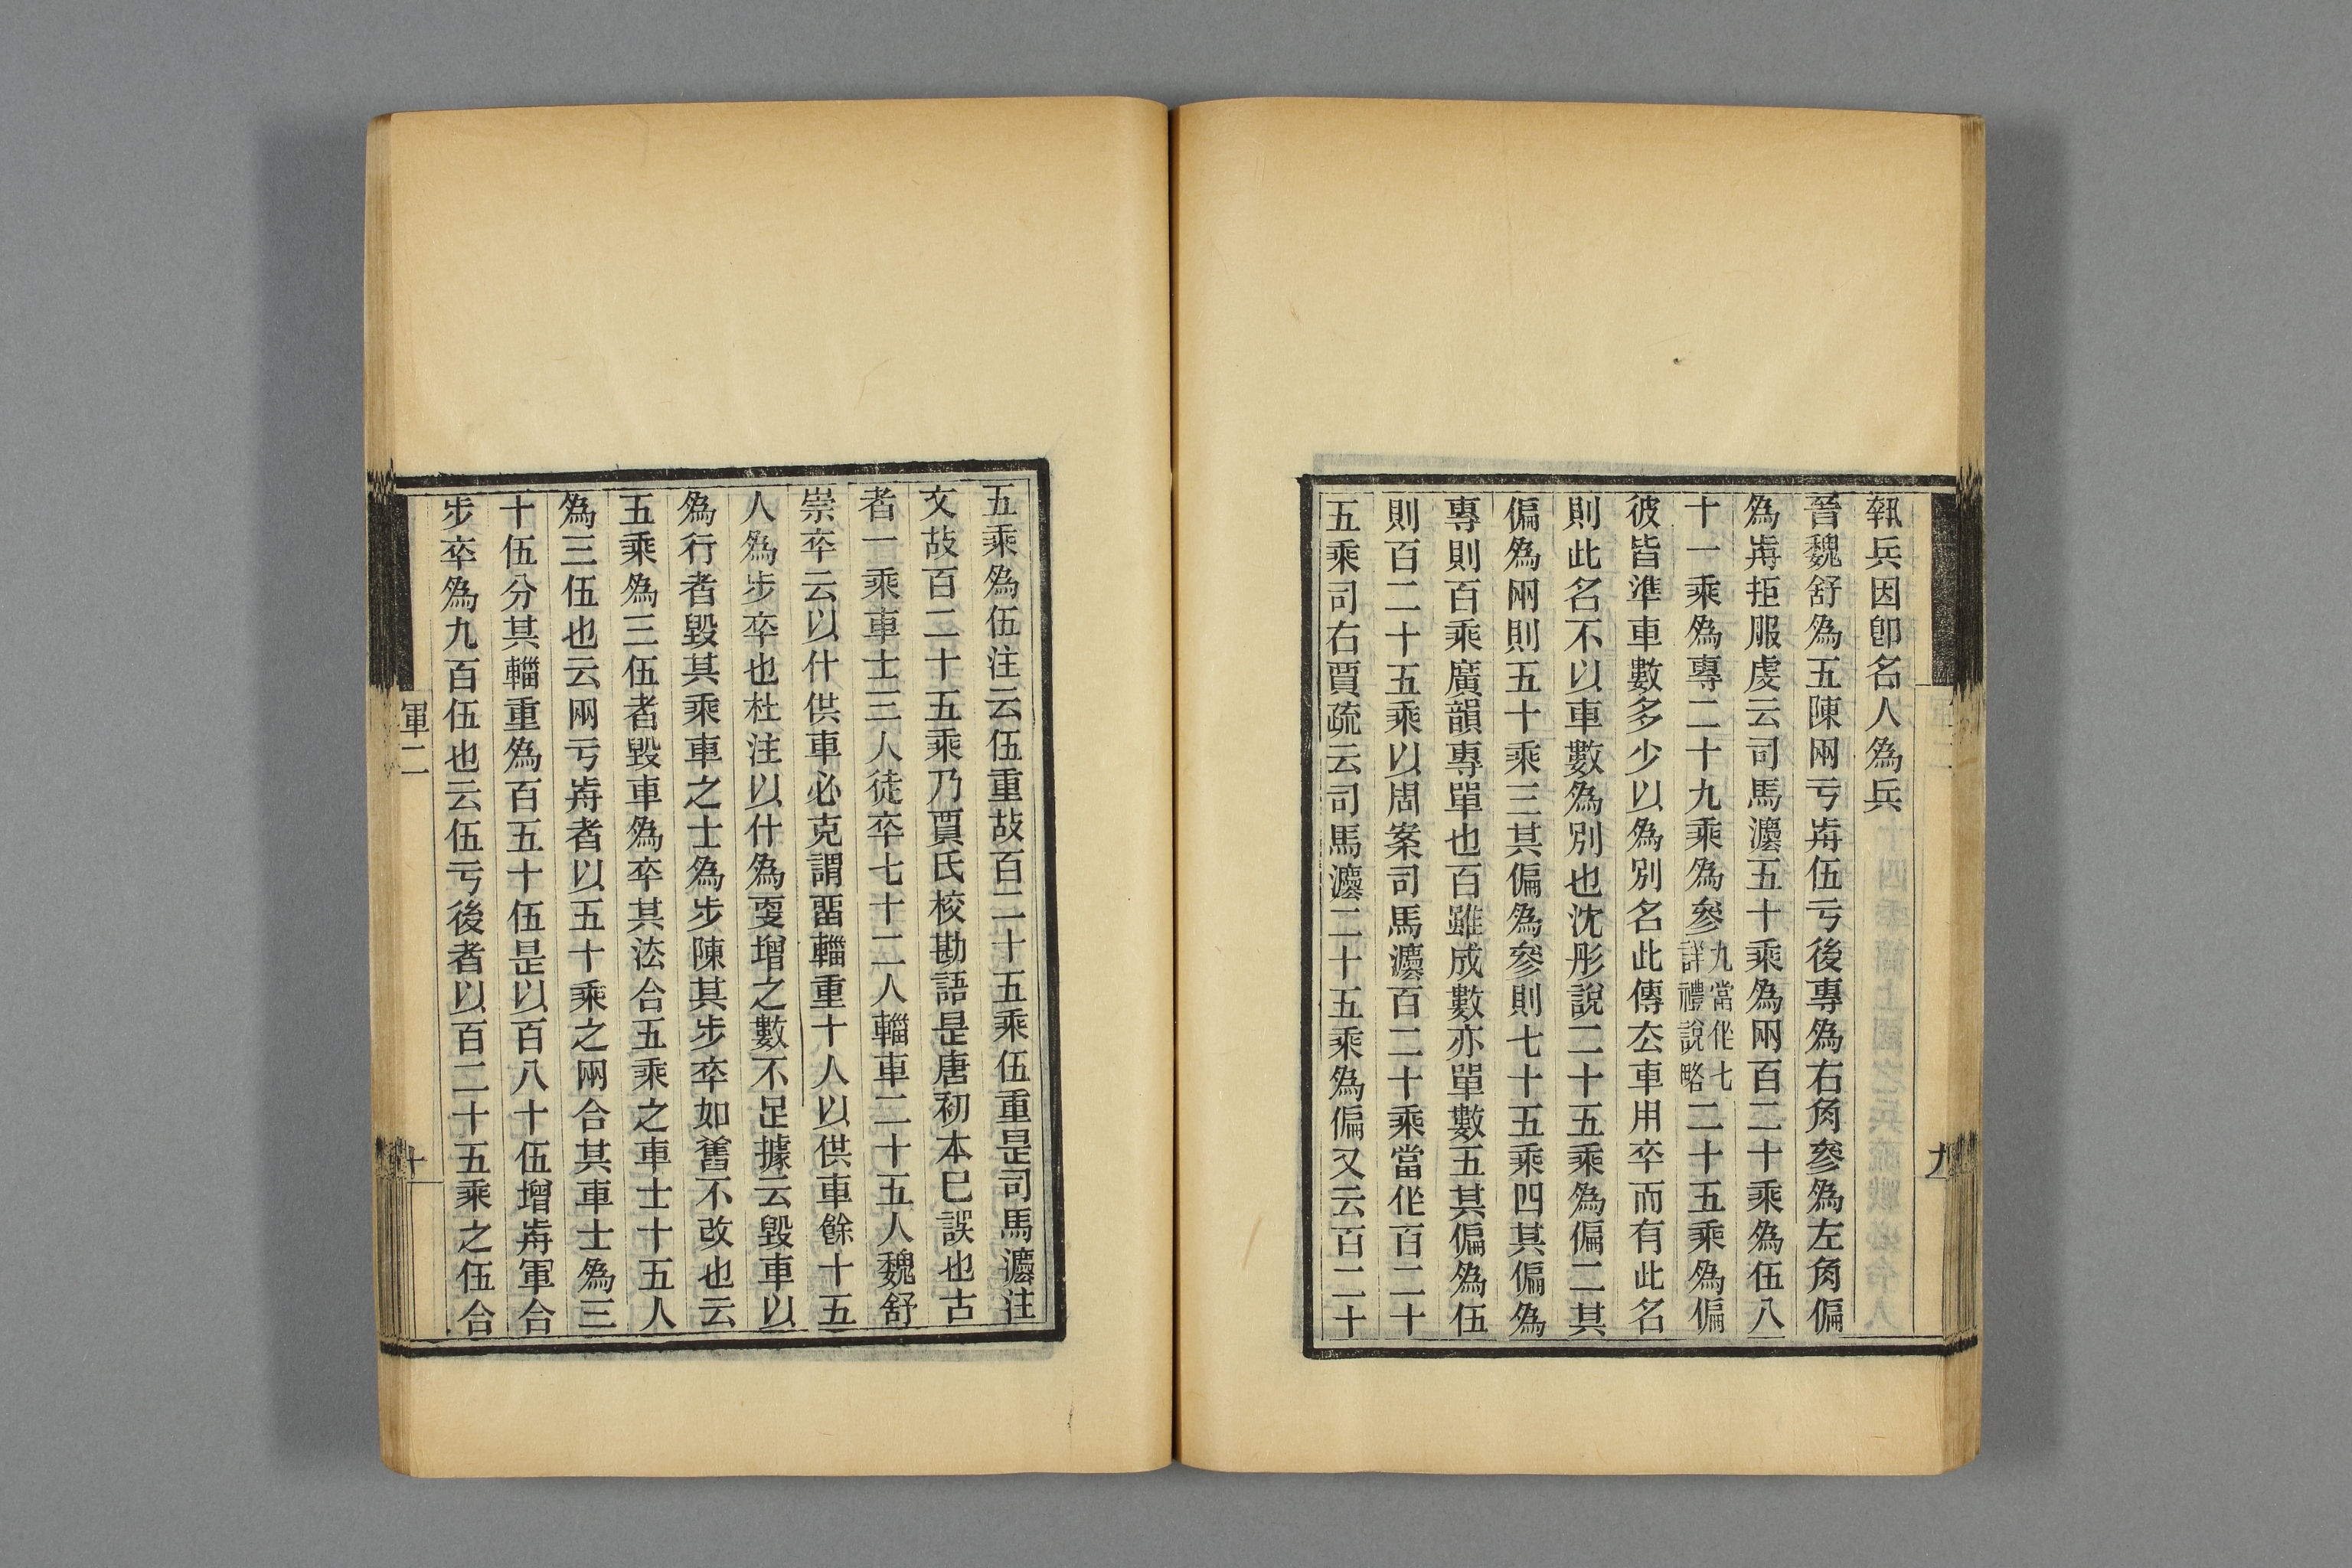 執兵因卽名人爲兵
晉魏舒爲五陳兩亏歬伍亏後專爲右𧢲參爲左𧢲偏
爲歬拒服虔云司馬灋五十乘爲兩百二十乘爲伍八
十一乘爲專二十九乘爲參九當作七詳禮說略二十五乘爲偏
彼皆準車數多少以爲別名此傳厺車用卒而有此名
則此名不以車數爲別也沈彤說二十五乘爲偏二其
偏爲兩則五十乘三其偏爲參則七十五乘四其偏爲
專則百乘廣韻專單也百雖成數亦單數五其偏爲伍
則百二十五乘以周案司馬灋百二十乘當作百二十
五乘司右賈疏云司馬灋二十五乘爲偏又云百二十
九
五乘爲伍注云伍重故百二十五乘伍重是司馬灋注
文故百二十五乘乃賈氏校勘語是唐初本已誤也古
者一乘車士三人徒卒七十二人輜車二十五人魏舒
崇卒云以什供車必克謂畱輜重十人以供車餘十五
人爲步卒也杜注以什爲㪅增之數不足據云毀車以
爲行者毀其乘車之士爲步陳其步卒如舊不改也云
五乘爲三伍者毀車爲卒其法合五乘之車士十五人
爲三伍也云兩亏歬者以五十乘之兩合其車士爲三
十伍分其輜重爲百五十伍是以百八十伍增歬軍合
步卒爲九百伍也云伍亏後者以百二十五乘之伍合
軍二
十